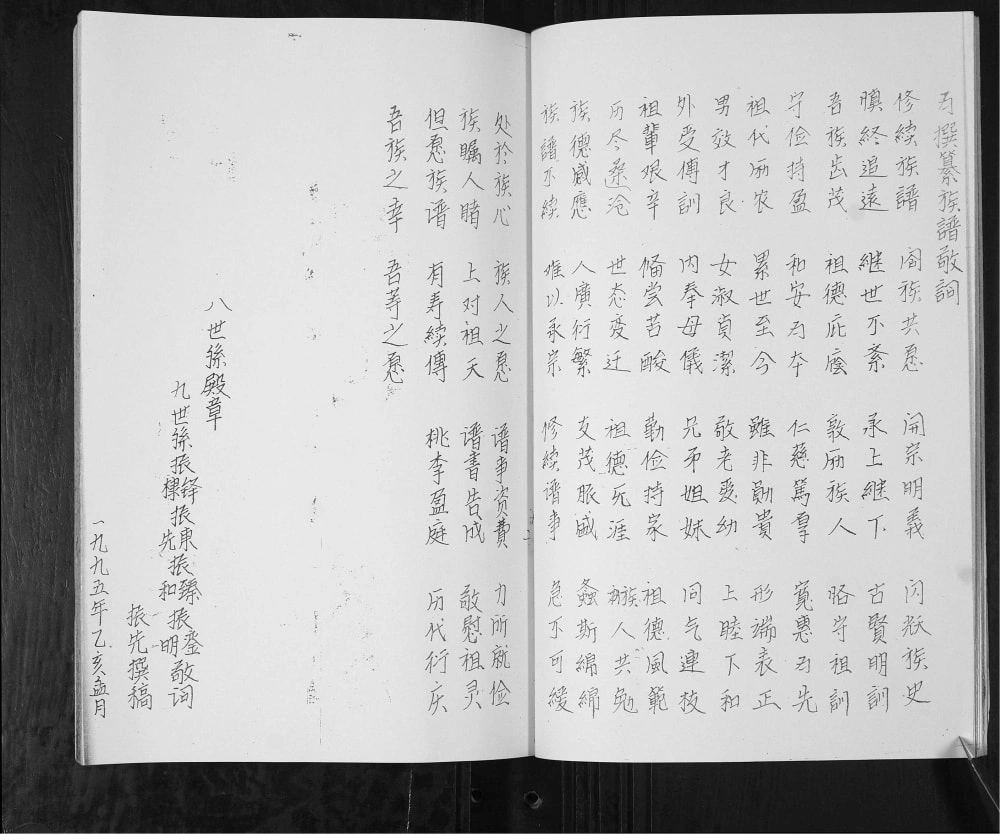 为撰纂族譜敬詞
修續族譜 阖族共愿 开宗明義 闪烁族史
慎終追遠 継世不紊 承上継下 古賢明訓
吾族齿茂 祖德庇廕 敦励族人 恪守祖訓
守俭持盈 和安为本 仁慈篤厚 寬惠为先
祖代励农 累世至今 雖非勋貴 形端表正
男效才良 女淑貞潔 敬老爱幼 上睦下和
外受傅訓 内奉母儀 兄弟姐妹 同气連枝
祖輩艰辛 偹尝苦酸 勤俭持家 祖德風範
历尽桑沧 世态变迁 祖德无涯 族人共勉
族德感應 人廣衍繁 支茂脈盛 螽斯綿綿
族譜不續 难以承宗 修續譜事 急不可緩
处於族心 族人之愿 谱事资費 力所就俭
族瞩人睹 上对祖天 谱書告成 敬慰祖灵
但愿族谱 有寿續傳 桃李盈庭 历代衍庆
吾族之幸 吾等之愿
八世孫殿章
九世孫振铎振東振臻振鋆敬词
樑先和明
振先撰稿
一九九五年乙亥孟月